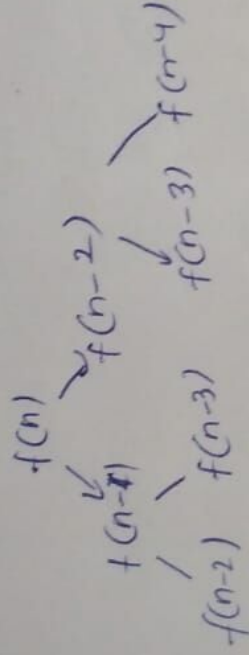 f(n)
f(n-1) f(n-2)
f(n-2) f(n-3) f(n-3) f(n-4)